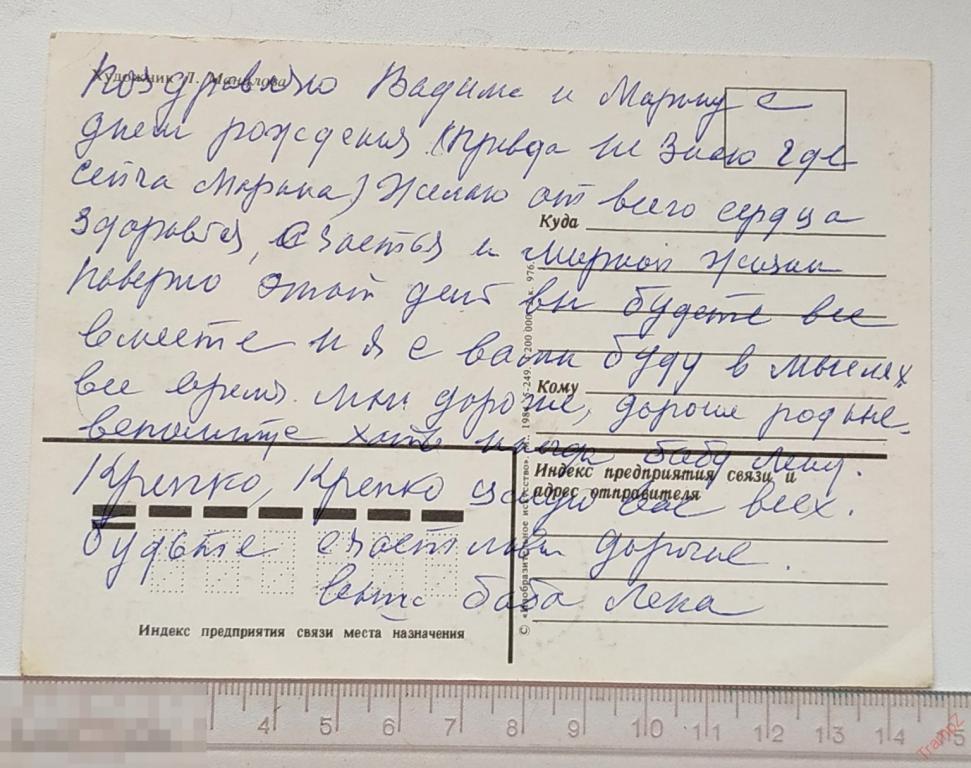 Художник Л. Манилова
Поздравляю Вадима и Марину с
днем рождения (правда не знаю где
сейча Марина) Желаю от всего сердца
Здоровья, счастья и мирной жизни
наверно этот день вы будете все
вместе и я с вами буду в мыслях
все время. мои дорогие, дорогие родные.
вспомните хоть бабу Лену.
Крепко, Крепко целую вас всех.
будьте счастливы дорогие.
баба Лена
Куда
Кому
Индекс предприятия связи и
адрес отправителя
Индекс предприятия связи места назначения
© «Изобразительное искусство».
4 5 6 7 8 9 10 11 12 13 14 15
TrampZ